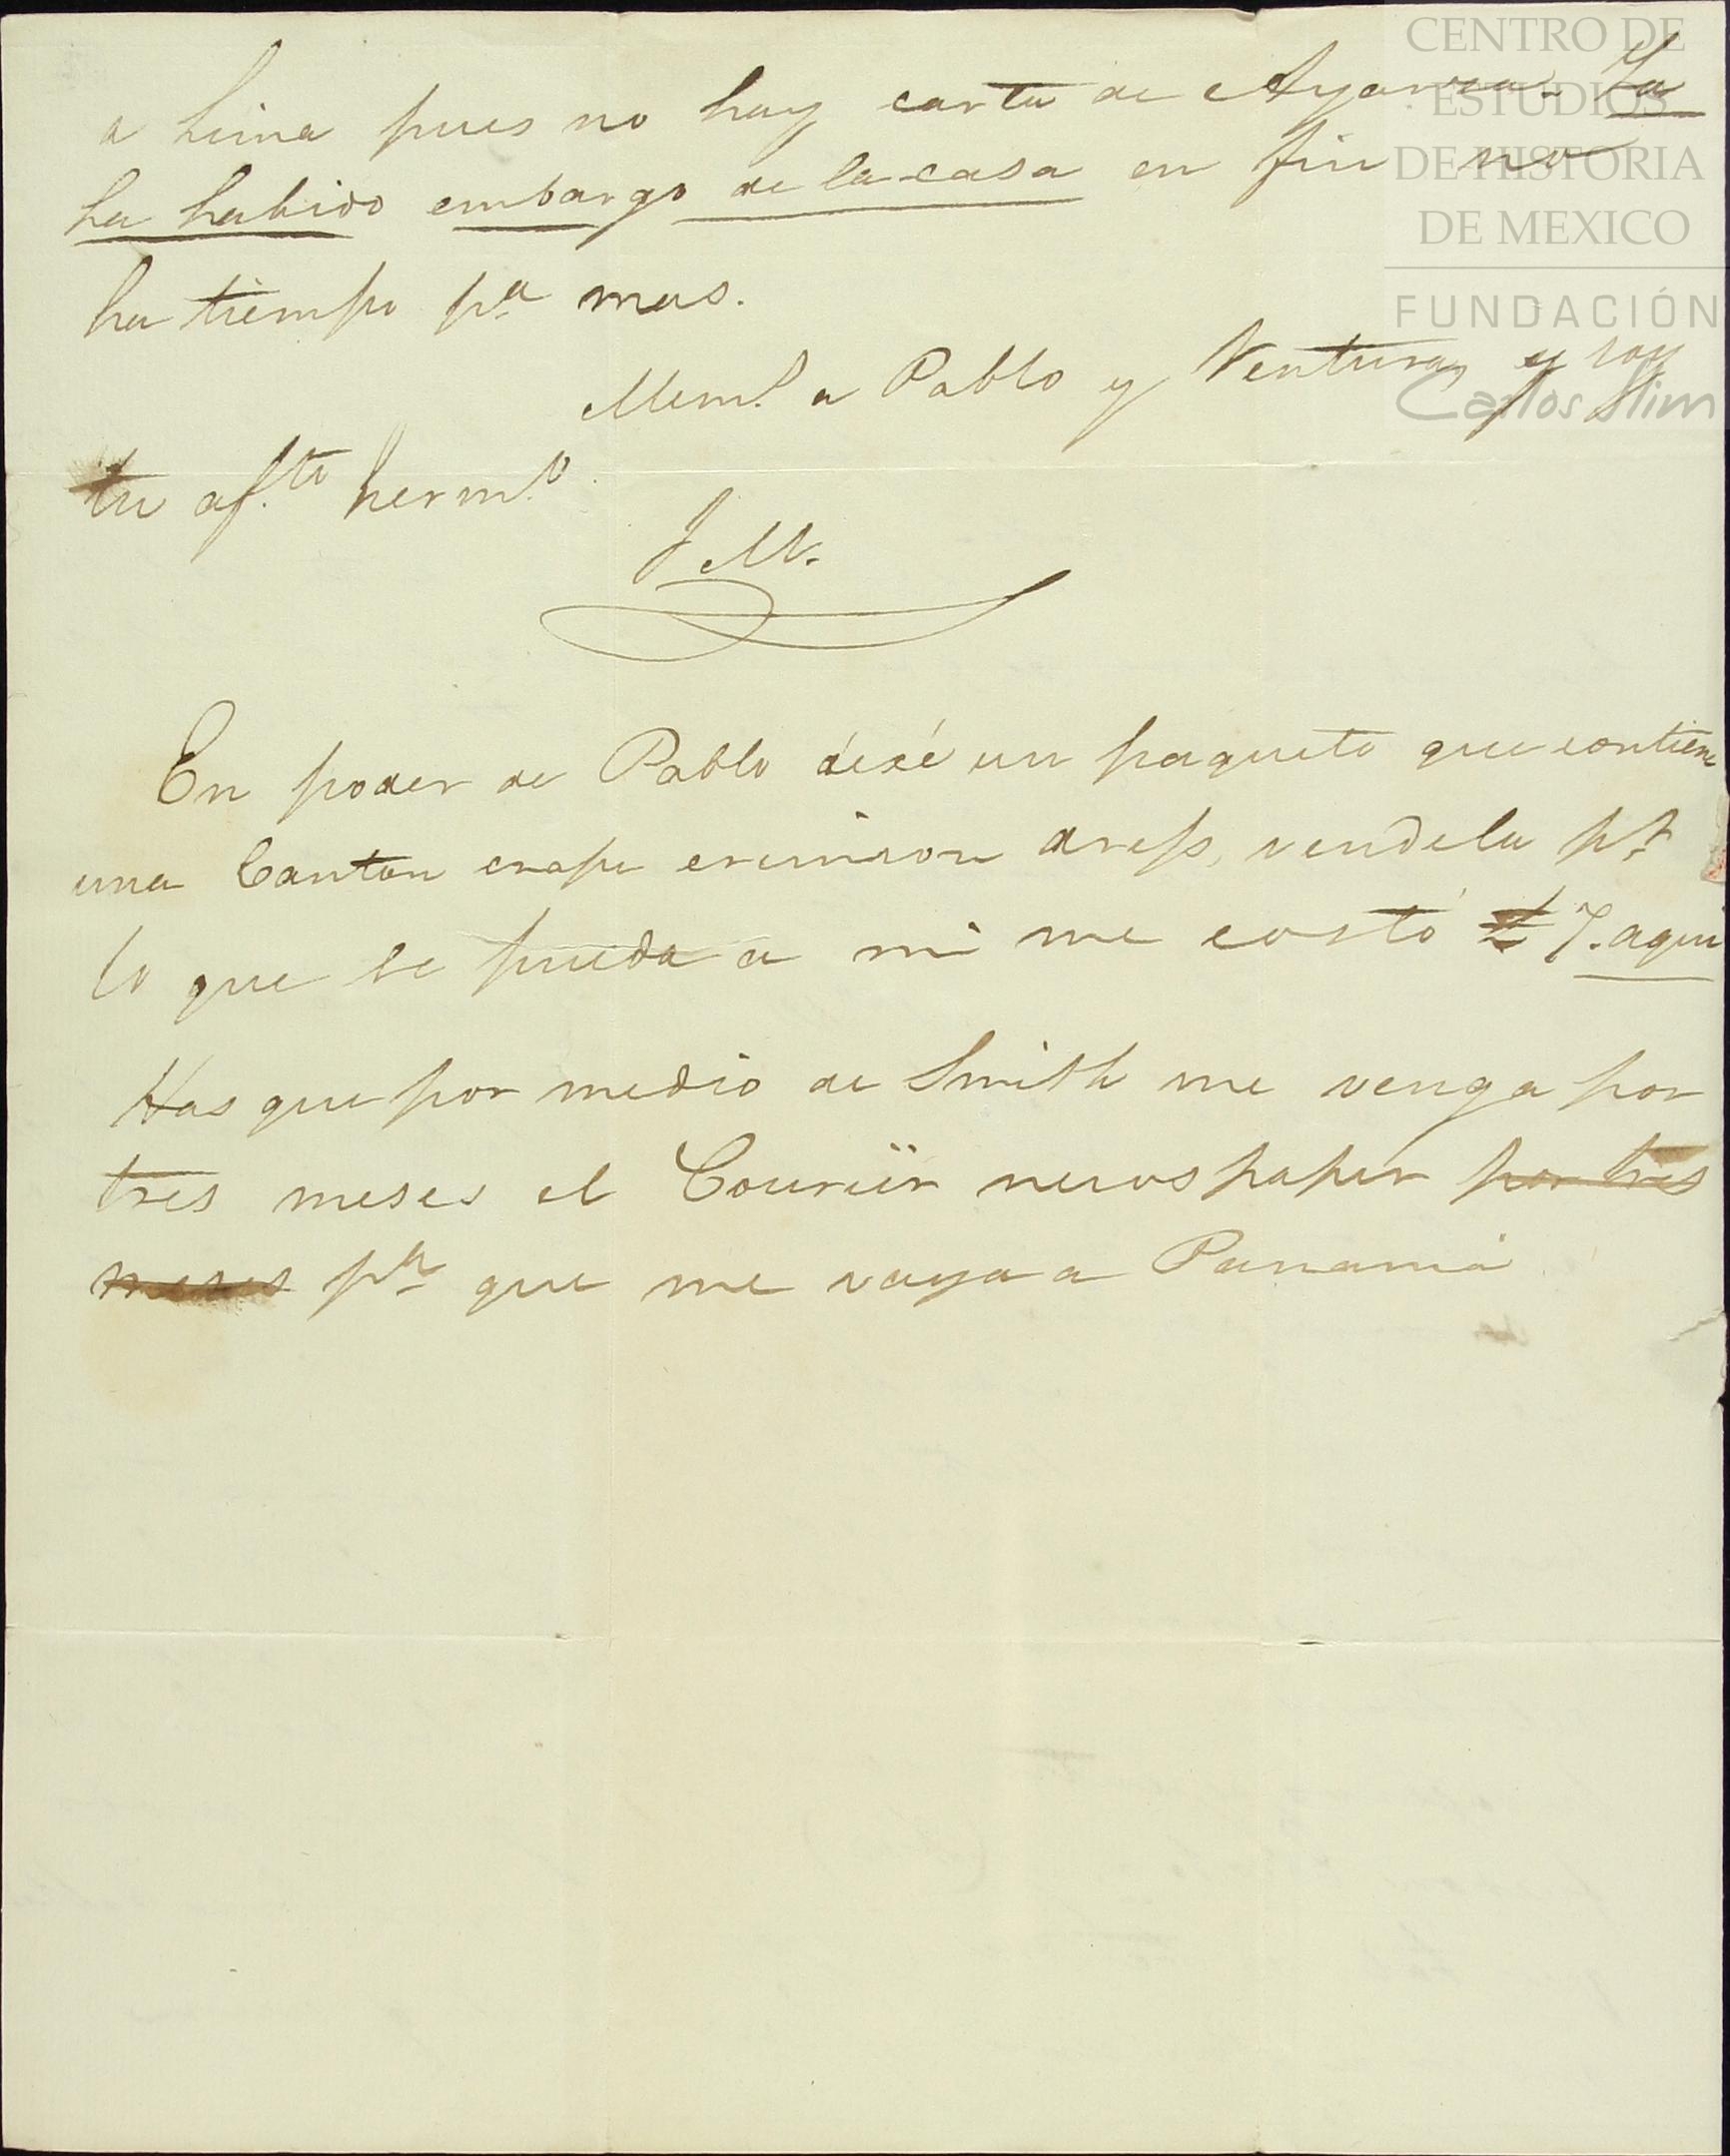 CENTRO DE
ESTUDIOS
DE HISTORIA
DE MEXICO
FUNDACIÓN
Carlos Slim
a Lima pues no hay carta de Ayarza. Ya
ha habido embargo de la casa en fin no
ha tiempo pa. mas.
Mem.s a Pablo y Ventura, y soy
tu af.to herm.o
J M.
En poder de Pablo dexé un paquete que contiene
una Canton crape crimson dress, vendela pr.
lo que se pueda a mi me costó £ 7. aqui
Has que por medio de Smith me venga por
tres meses el Couriër newspaper por tres
meses pa. que me vaya a Panamá